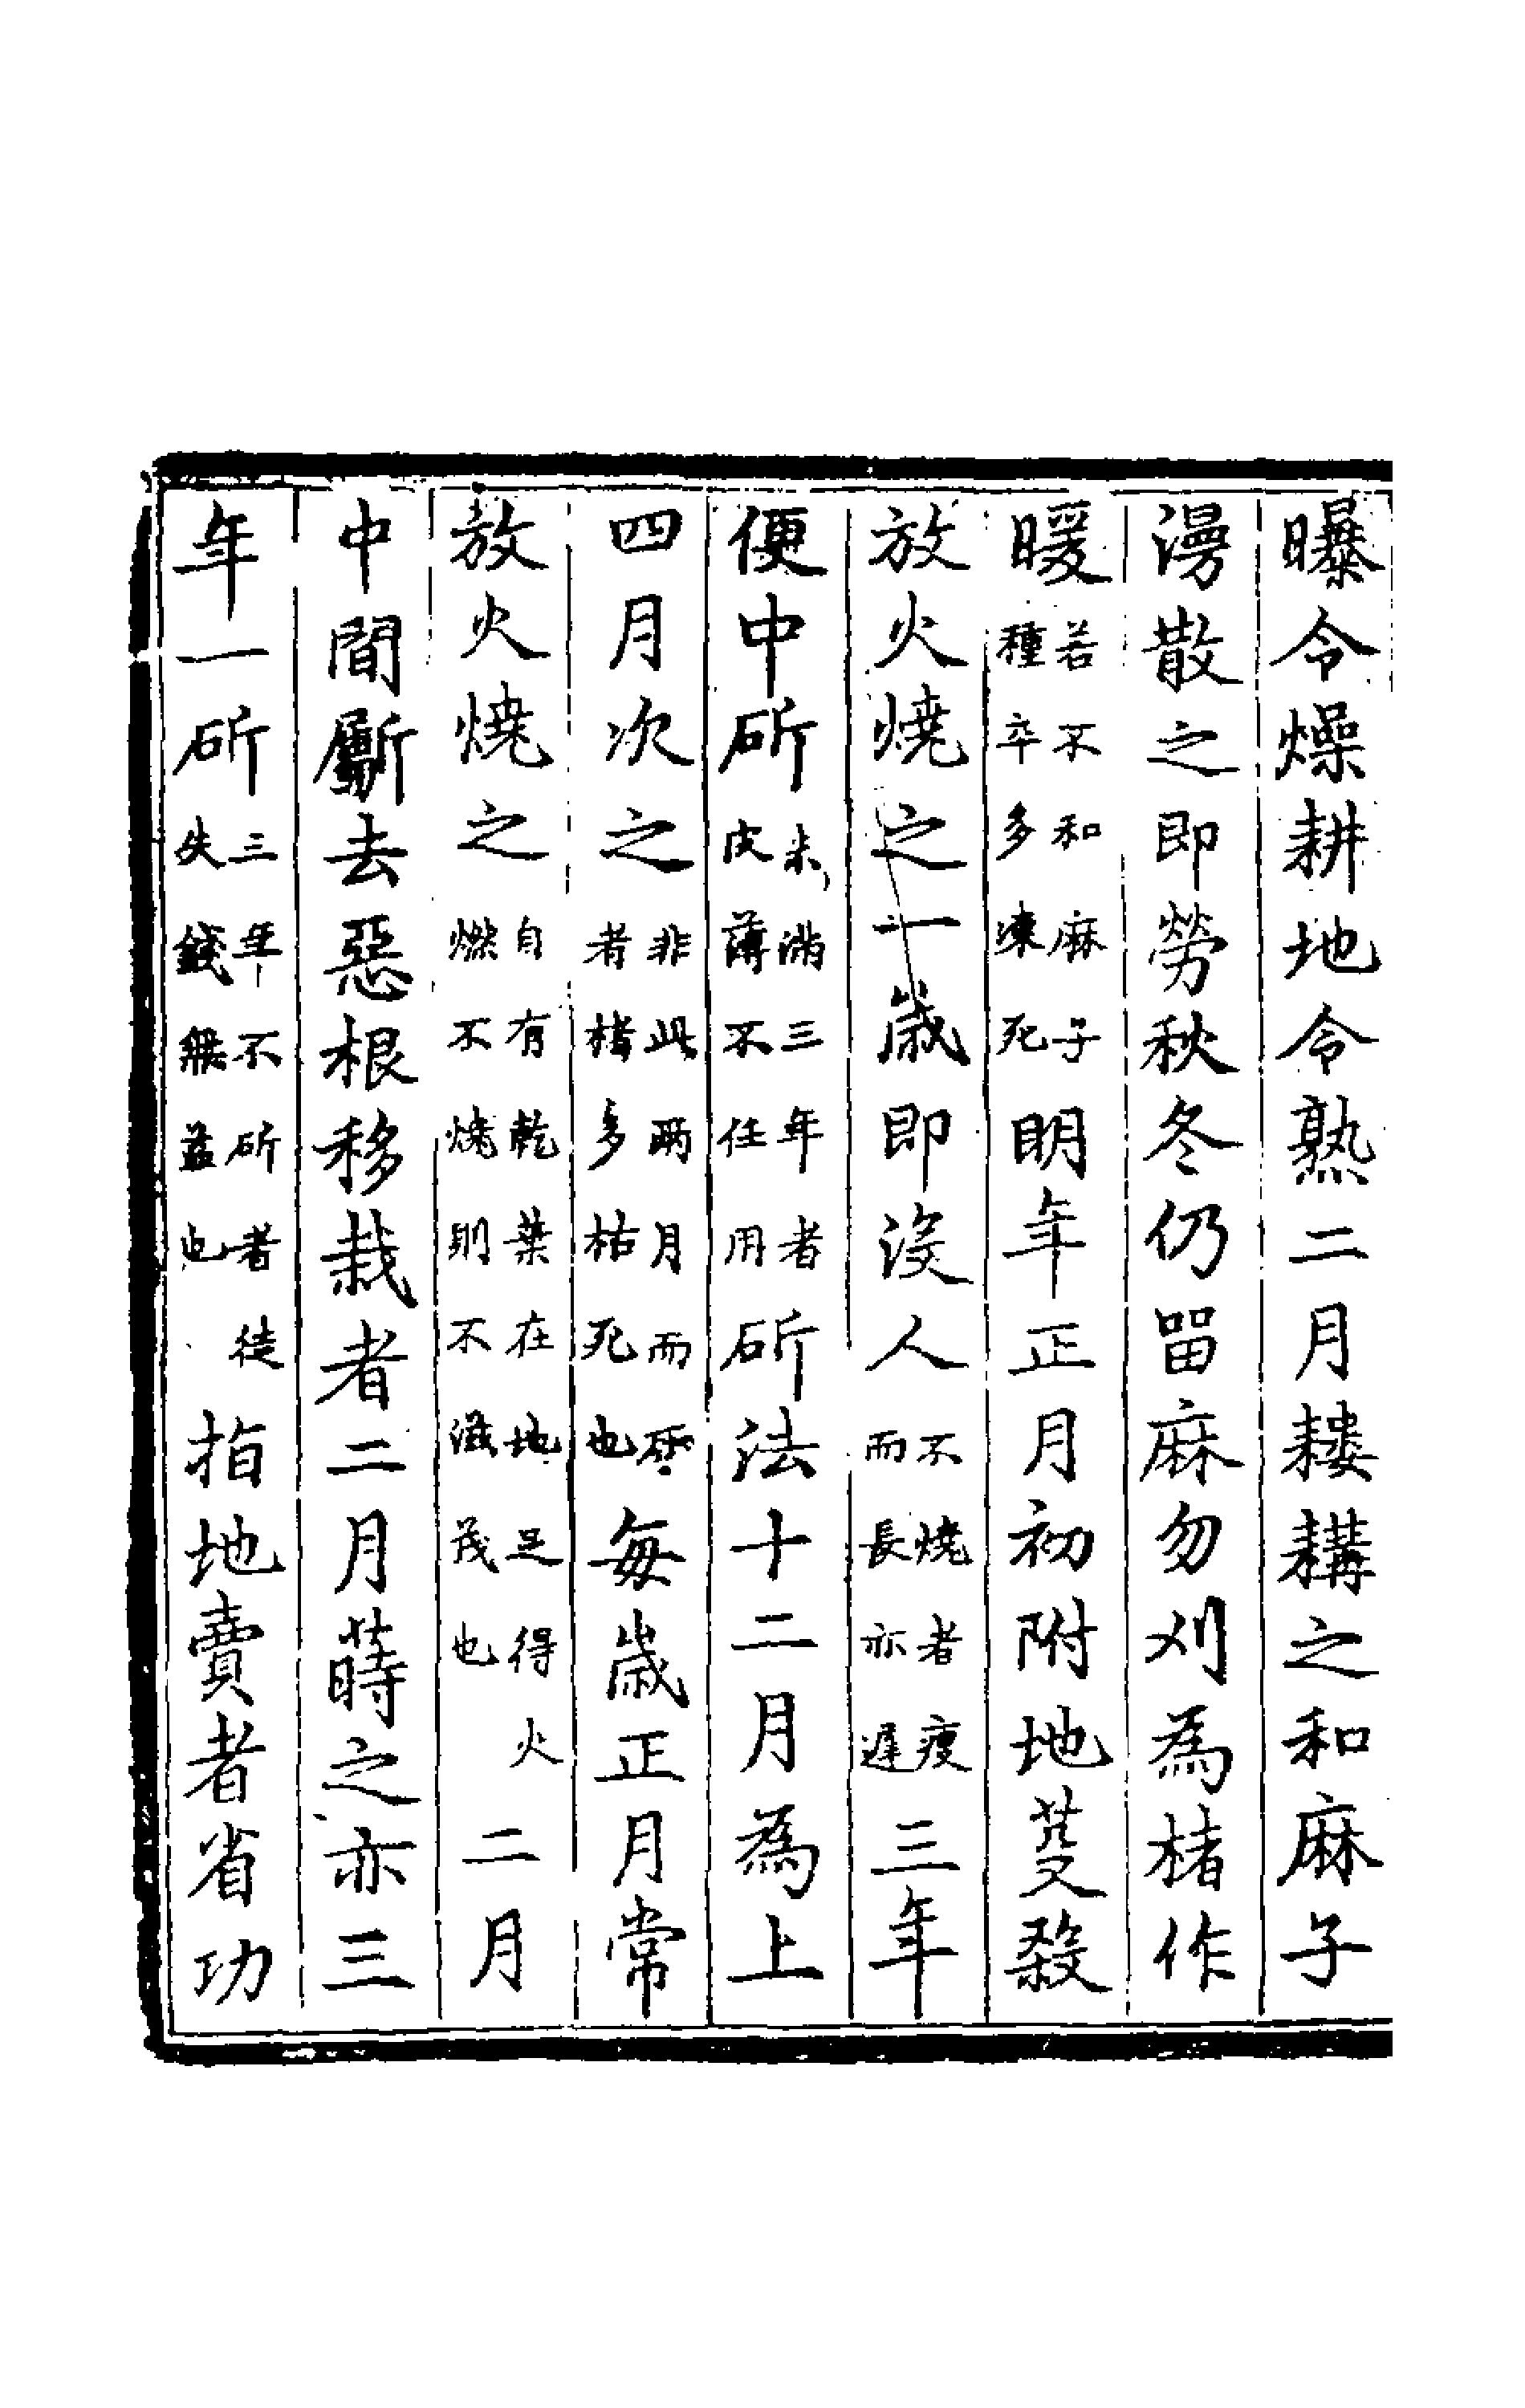 曝令燥耕地令熟二月耬耩之和麻子
漫散之即勞秋冬仍留麻勿刈為楮作
暖若不和麻子種卒多凍死明年正月初附地芟殺
放火燒之一歲即沒人不燒者瘦而長亦遲三年
便中斫未滿三年者皮薄不任用斫法十二月為上
四月次之非此兩月而斫者楮多枯死也每歲正月常
放火燒之自有乾葉在地足得火燃不燒則不滋茂也二月
中間斸去惡根移栽者二月蒔之亦三
年一斫三年不斫者徒失錢無益也指地賣者省功